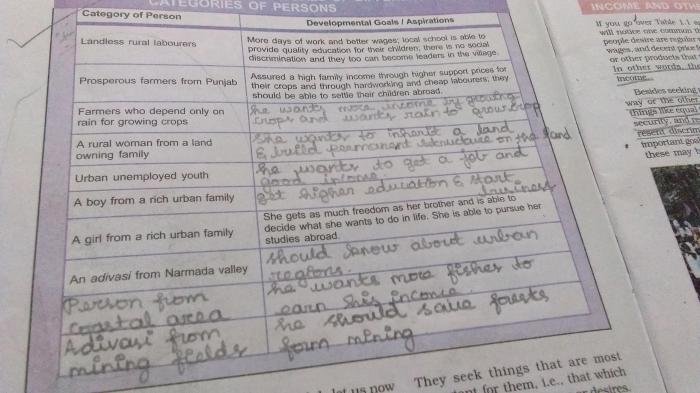 CATEGORIES OF PERSONS
Category of Person
Developmental Goals / Aspirations
Landless rural labourers
More days of work and better wages; local school is able to
provide quality education for their children; there is no social
discrimination and they too can become leaders in the village.
Prosperous farmers from Punjab
Assured a high family income through higher support prices for
their crops and through hardworking and cheap labourers; they
should be able to settle their children abroad.
Farmers who depend only on
rain for growing crops
he wants more income by growing
crops and wants rain to grow crop
A rural woman from a land
owning family
She wants to inherit a land
& build permanent structure on the land
Urban unemployed youth
he wants to get a job and
good income.
A boy from a rich urban family
get higher education & start
business
A girl from a rich urban family
She gets as much freedom as her brother and is able to
decide what she wants to do in life. She is able to pursue her
studies abroad.
An adivasi from Narmada valley
should know about urban
regions.
Person from
coastal area
he wants more fishes to
earn his income
Adivasi from
mining fields
he should save forests
form mining
let us now
They seek things that are most
for them, i.e., that which
desires.
INCOME AND OTH
If you go over Table 1.1
will notice one common
people desire are regular
wages, and decent price
or other products that
In other words, the
income.
Besides seeking
way or the other
things like equal
security, and
resent discri
important goal
these may b